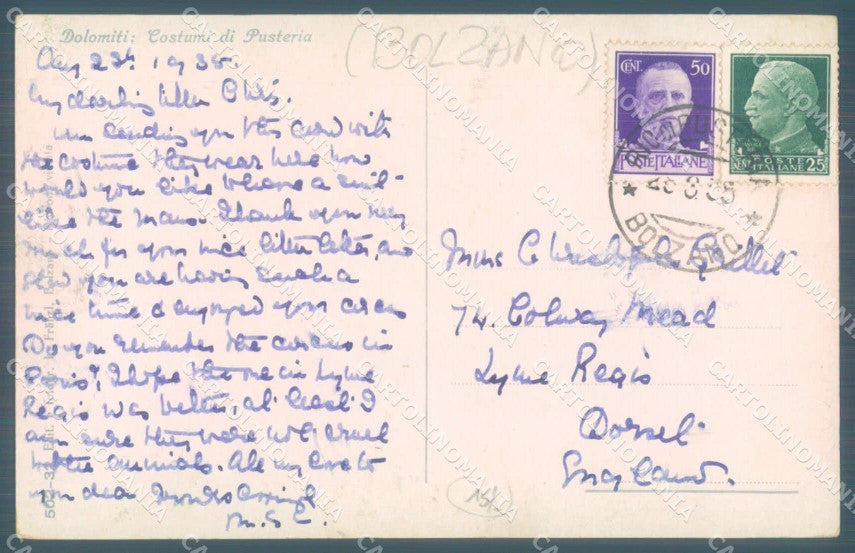 Dolomiti: Costumi di Pusteria
(BOLZANO)
Aug 23rd 1935.
My darling little Chris.
am sending you this card with
the costume they wear here how
would you like to have a suit
like the man's. Thank you very
much for your nice little letter, and
you are having such a
nice time & enjoyed your circus
Do you remember the circus in
Paris, I hope the one in Lyme
Regis was better, at least I
am sure they were not cruel
to the animals. All my love to
you dear
M.S.E.
CENT. 50
POSTE ITALIANE
POSTE ITALIANE
CENT 25
BOLZANO
Miss C
74. Colway Mead
Lyme Regis
Dorset
England.
CARTOLINOMANIA